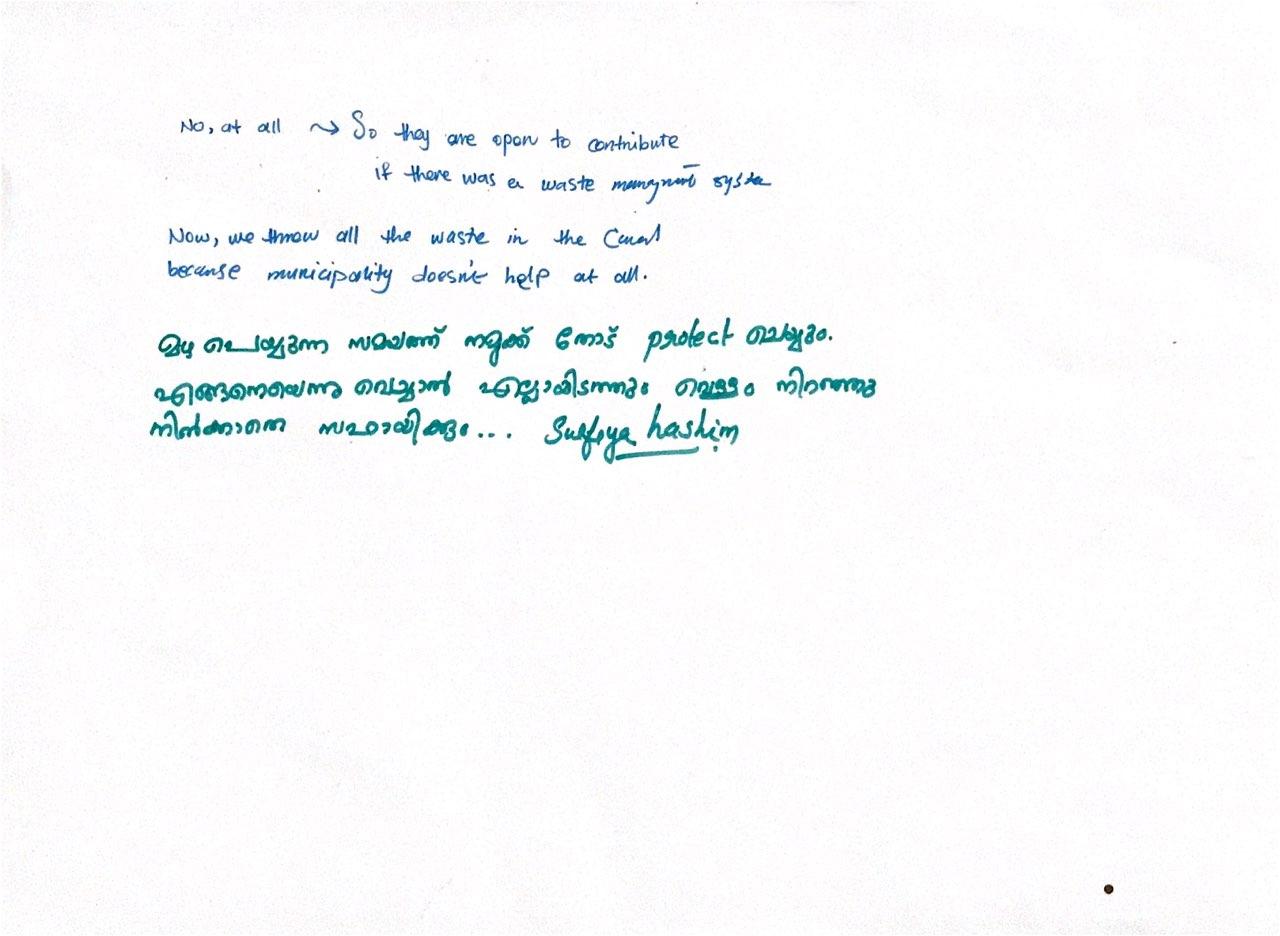 No, at all ⤳ So they are opan to contribute
if there was a waste managment system
Now, we throw all the waste in the Canal
because municipality doesn't help at all.
മഴ പെയ്യുന്ന സമയത്ത് നമുക്ക് തോട് protect ചെയ്യും.
എങ്ങനെയെന്നു വെച്ചാൽ എല്ലായിടത്തും വെള്ളം നിറഞ്ഞു
നിൽക്കാതെ സഹായിക്കും...  hashim